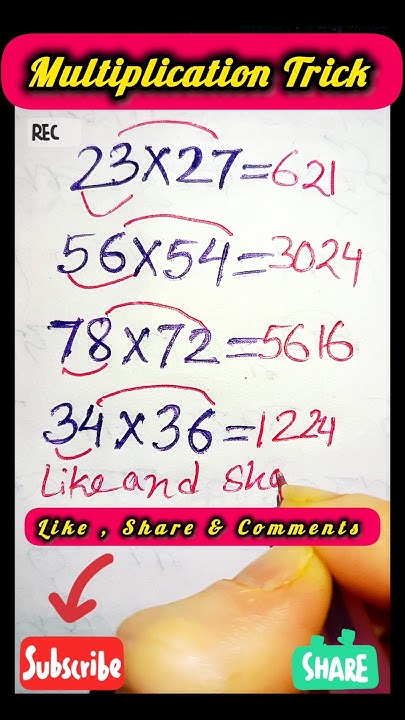 Multiplication Trick
REC
23X27=621
56X54=3024
78X72=5616
34X36=1224
Like and Sha
Like , Share & Comments
Subscribe
SHARE